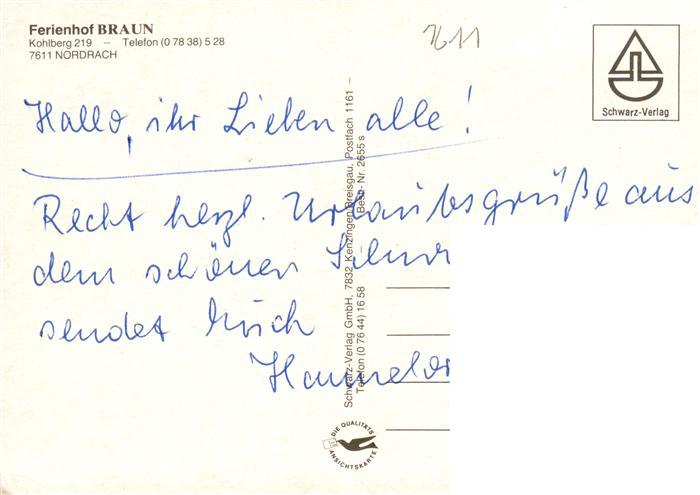 Ferienhof BRAUN
Kohlberg 219 – Telefon (0 78 38) 5 28
7611 NORDRACH
7611
Schwarz-Verlag
Hallo, ihr Lieben alle!
Recht herzl. Urlaubsgrüße aus
dem schönen
sendet Euch
Hannelor
Schwarz-Verlag GmbH, 7832 Kenzingen/Breisgau, Postfach 1161 –
Telefon (0 76 44) 16 58 – Bestell-Nr. 2655 s
DIE QUALITÄTS
ANSICHTSKARTE